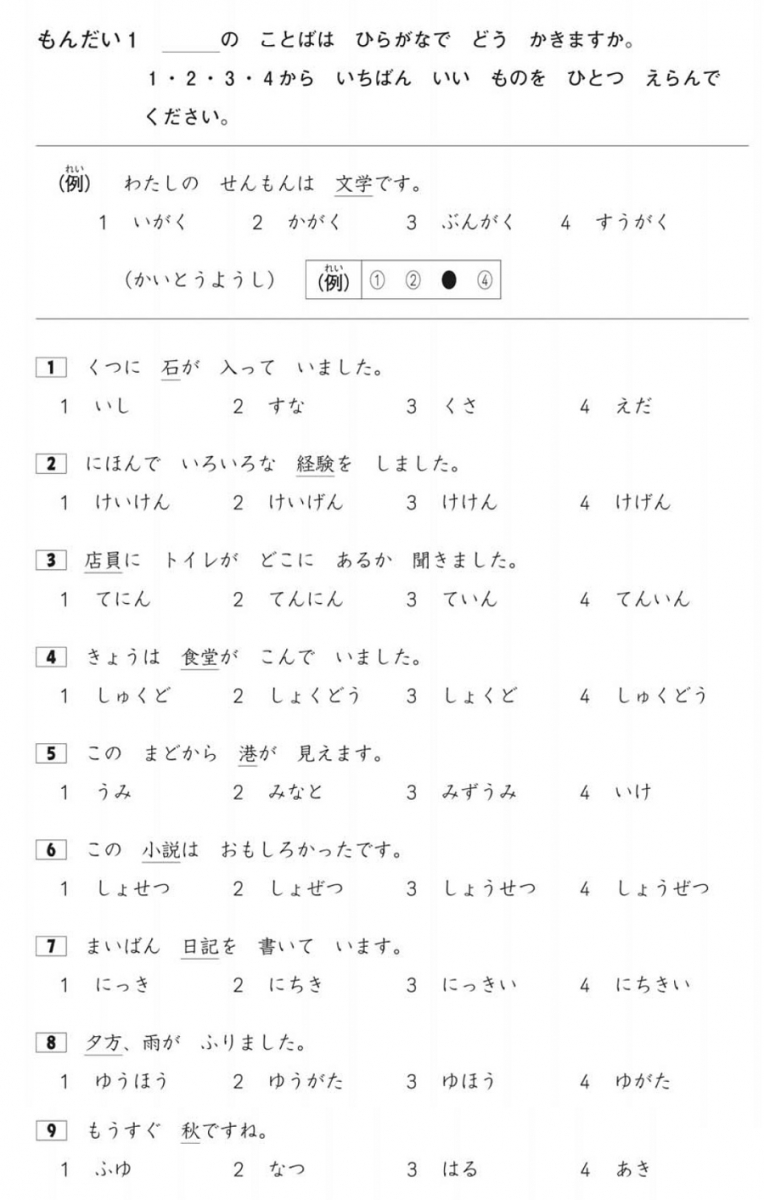 もんだい1 ＿＿＿の ことばは ひらがなで どう かきますか。
1・2・3・4から いちばん いい ものを ひとつ えらんで
ください。
(例) わたしの せんもんは 文学です。
れい
1 いがく 2 かがく 3 ぶんがく 4 すうがく
(かいとうようし) (例) ① ② ● ④
れい
1 くつに 石が 入って いました。
1 いし 2 すな 3 くさ 4 えだ
2 にほんで いろいろな 経験を しました。
1 けいけん 2 けいげん 3 けけん 4 けげん
3 店員に トイレが どこに あるか 聞きました。
1 てにん 2 てんにん 3 ていん 4 てんいん
4 きょうは 食堂が こんで いました。
1 しゅくど 2 しょくどう 3 しょくど 4 しゅくどう
5 この まどから 港が 見えます。
1 うみ 2 みなと 3 みずうみ 4 いけ
6 この 小説は おもしろかったです。
1 しょせつ 2 しょぜつ 3 しょうせつ 4 しょうぜつ
7 まいばん 日記を 書いて います。
1 にっき 2 にちき 3 にっきい 4 にちきい
8 夕方、雨が ふりました。
1 ゆうほう 2 ゆうがた 3 ゆほう 4 ゆがた
9 もうすぐ 秋ですね。
1 ふゆ 2 なつ 3 はる 4 あき